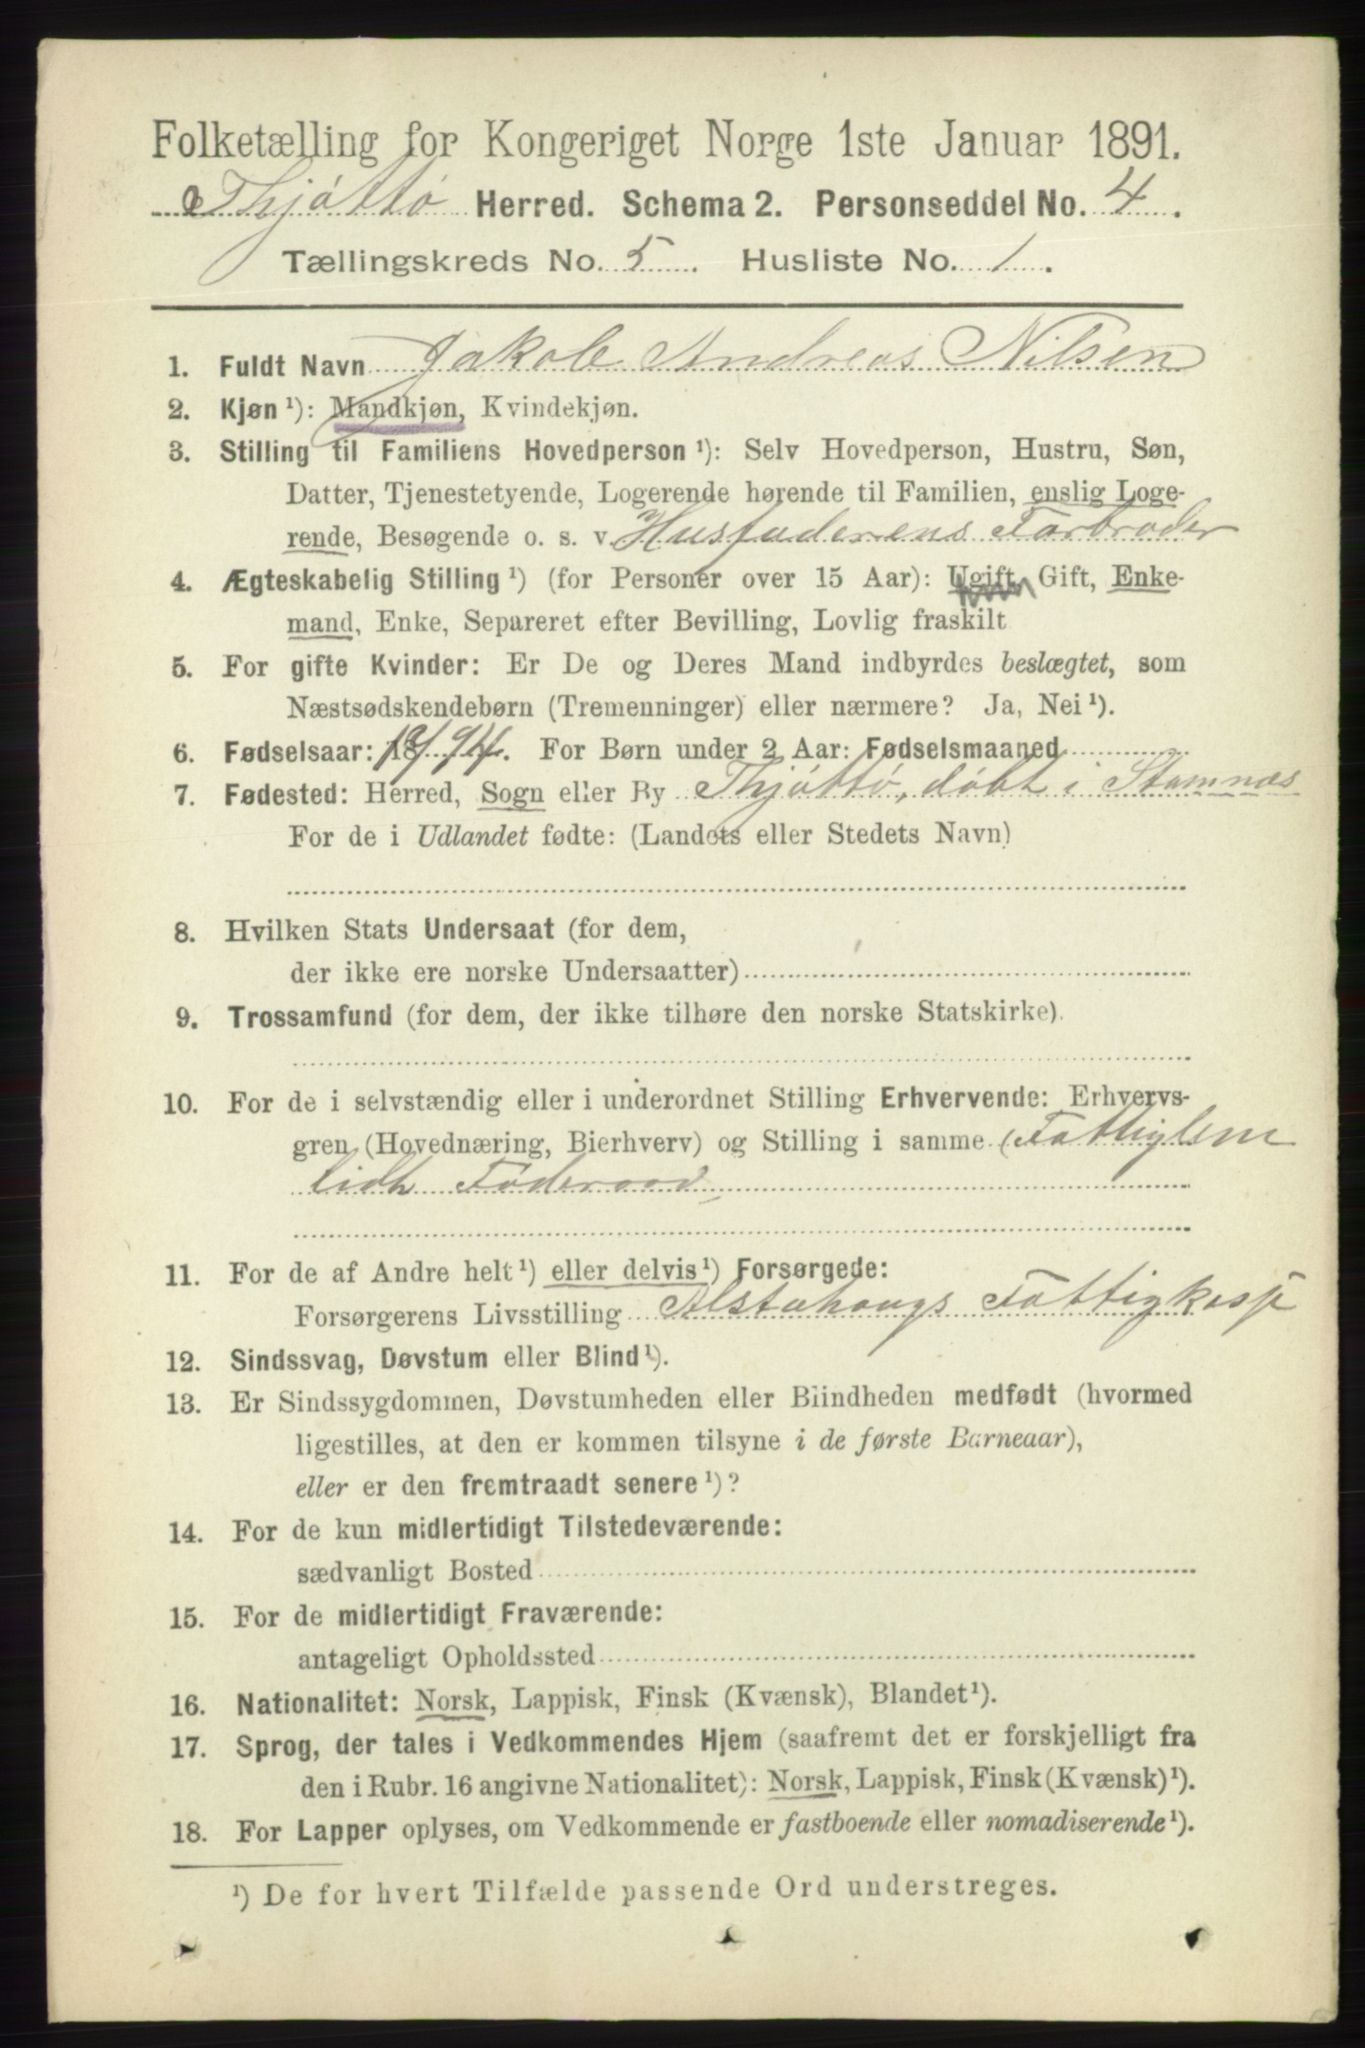 Folketælling for Kongeriget Norge 1ste Januar 1891.
Thjøttø Herred. Schema 2. Personseddel No. 4.
Tællingskreds No. 5. Husliste No. 1.
1. Fuldt Navn Jakob Andreas Nilsen
2. Kjøn ¹): Mandkjøn, Kvindekjøn.
3. Stilling til Familiens Hovedperson ¹): Selv Hovedperson, Hustru, Søn,
Datter, Tjenestetyende, Logerende hørende til Familien, enslig Loge-
rende, Besøgende o. s. v. Husfaderens Farbroder
4. Ægteskabelig Stilling ¹) (for Personer over 15 Aar): Ugift, Gift, Enke-
mand, Enke, Separeret efter Bevilling, Lovlig fraskilt
5. For gifte Kvinder: Er De og Deres Mand indbyrdes beslægtet, som
Næstsødskendebørn (Tremenninger) eller nærmere? Ja, Nei ¹).
6. Fødselsaar: For Børn under 2 Aar: Fødselsmaaned
7. Fødested: Herred, Sogn eller By Thjøttø, døbt i Stamnæs
For de i Udlandet fødte: (Landets eller Stedets Navn)
8. Hvilken Stats Undersaat (for dem,
der ikke ere norske Undersaatter)
9. Trossamfund (for dem, der ikke tilhøre den norske Statskirke).
10. For de i selvstændig eller i underordnet Stilling Erhvervende: Erhvervs-
gren (Hovednæring, Bierhverv) og Stilling i samme (Fattiglem
lidt Føderaad
11. For de af Andre helt ¹) eller delvis ¹) Forsørgede:
Forsørgerens Livsstilling Alstahaugs Fattigkasse
12. Sindssvag, Døvstum eller Blind ¹).
13. Er Sindssygdommen, Døvstumheden eller Blindheden medfødt (hvormed
ligestilles, at den er kommen tilsyne i de første Barneaar),
eller er den fremtraadt senere ¹)?
14. For de kun midlertidigt Tilstedeværende:
sædvanligt Bosted
15. For de midlertidigt Fraværende:
antageligt Opholdssted
16. Nationalitet: Norsk, Lappisk, Finsk (Kvænsk), Blandet ¹).
17. Sprog, der tales i Vedkommendes Hjem (saafremt det er forskjelligt fra
den i Rubr. 16 angivne Nationalitet): Norsk, Lappisk, Finsk (Kvænsk) ¹).
18. For Lapper oplyses, om Vedkommende er fastboende eller nomadiserende ¹).
¹) De for hvert Tilfælde passende Ord understreges.